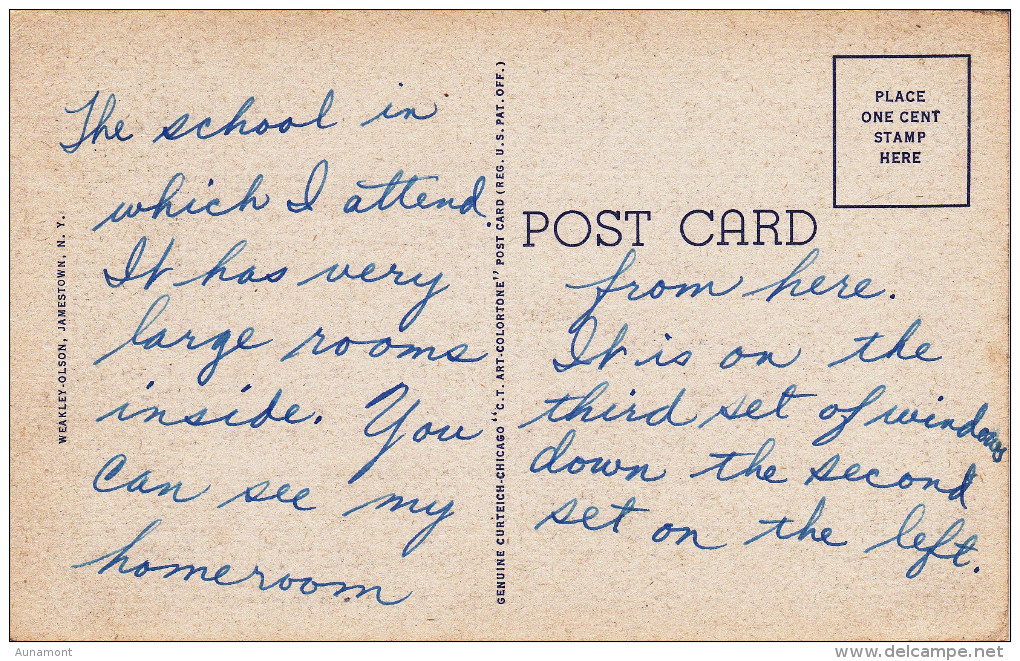 The school in
which I attend.
It has very
large rooms
inside. You
can see my
homeroom
from here.
It is on the
third set of windows
down the second
set on the left.
POST CARD
PLACE
ONE CENT
STAMP
HERE
WEAKLEY-OLSON, JAMESTOWN, N. Y.
GENUINE CURTEICH-CHICAGO "C.T. ART-COLORTONE" POST CARD (REG. U.S. PAT. OFF.)
Aunamont
www.delcampe.net